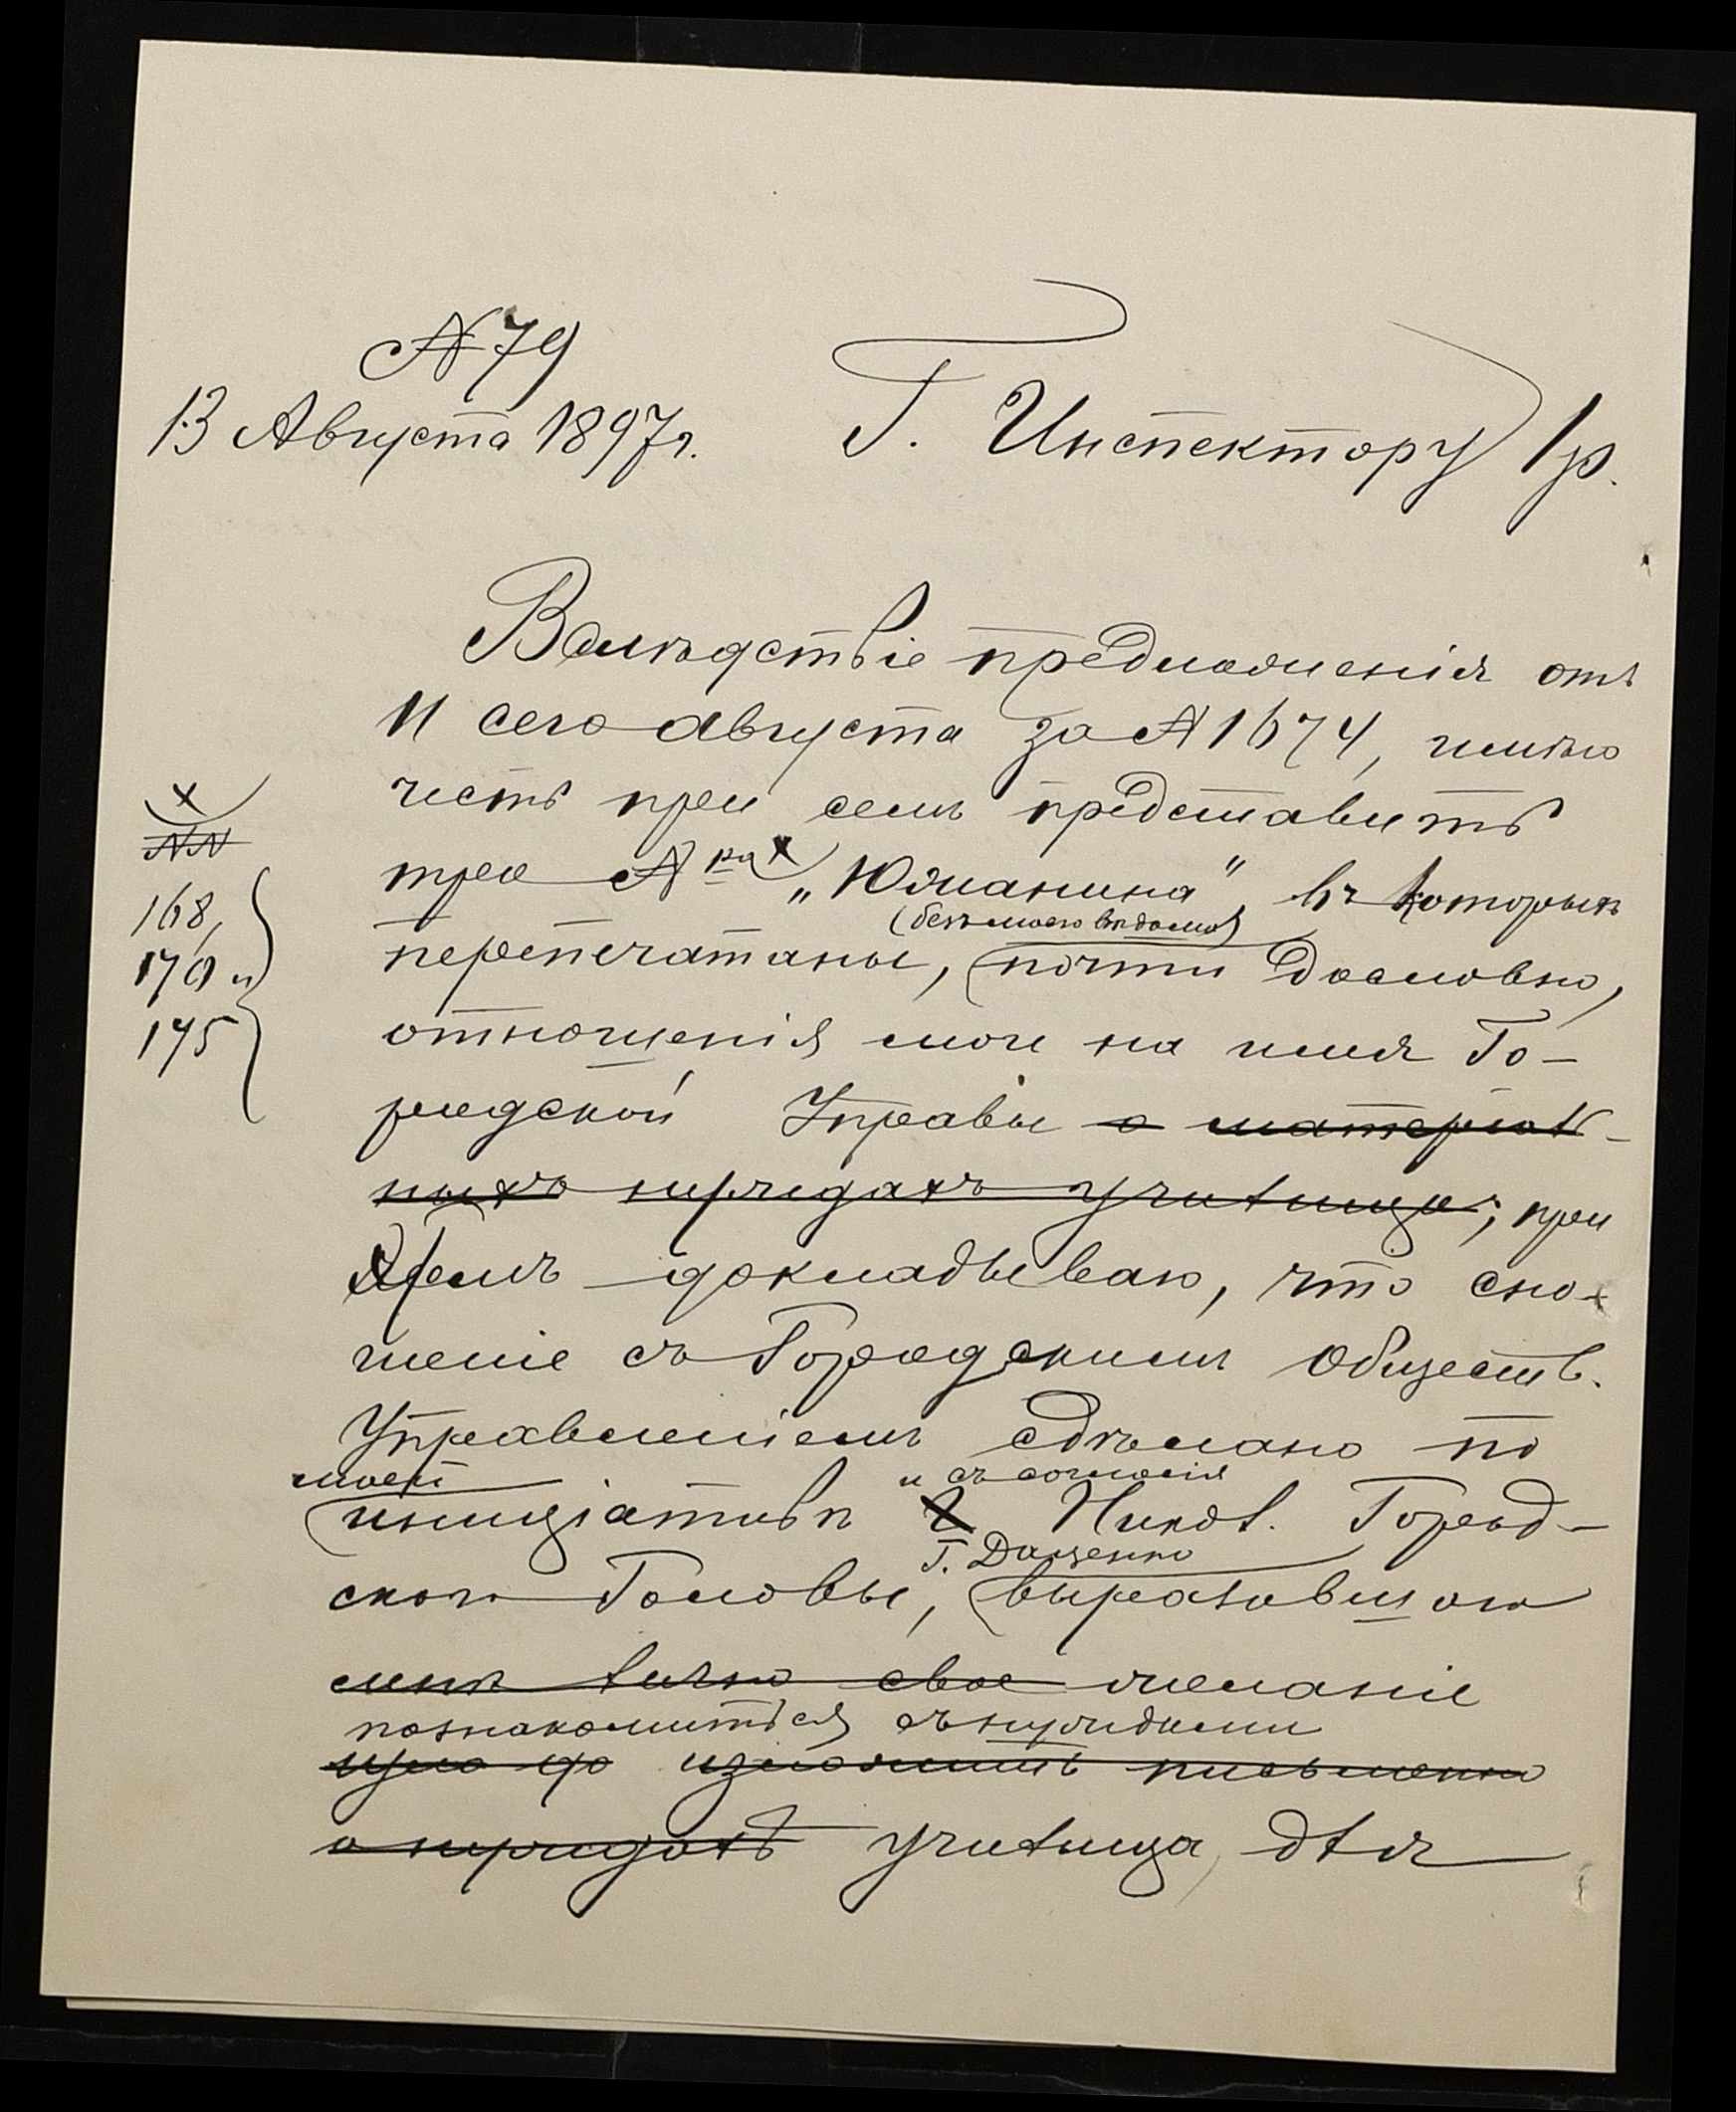 № 79
13 Августа 1897г.
Г. Инспектору 1 р.
Вслѣдствіе предложенія отъ
11 сего Августа за № 1674, имѣю
честь при семъ представить
три №ра х „Южанина", въ которыхъ
(безъ моего вѣдома)
перепечатаны, почти дословно,
отношенія мои на имя Го-
родской Управы о матеріаль-
ныхъ нуждахъ училища; при
чемъ докладываю, что сно-
шеніе съ Городскимъ Обществ.
Управленіемъ сдѣлано по
моей и съ согласія
иниціативѣ Никол. Город-
г. Даценко
ского Головы, выразившаго
мнѣ лично свое желаніе
познакомиться съ нуждами
изложить письменно
о нуждахъ училища, для
х
№№
168,
170 и
175